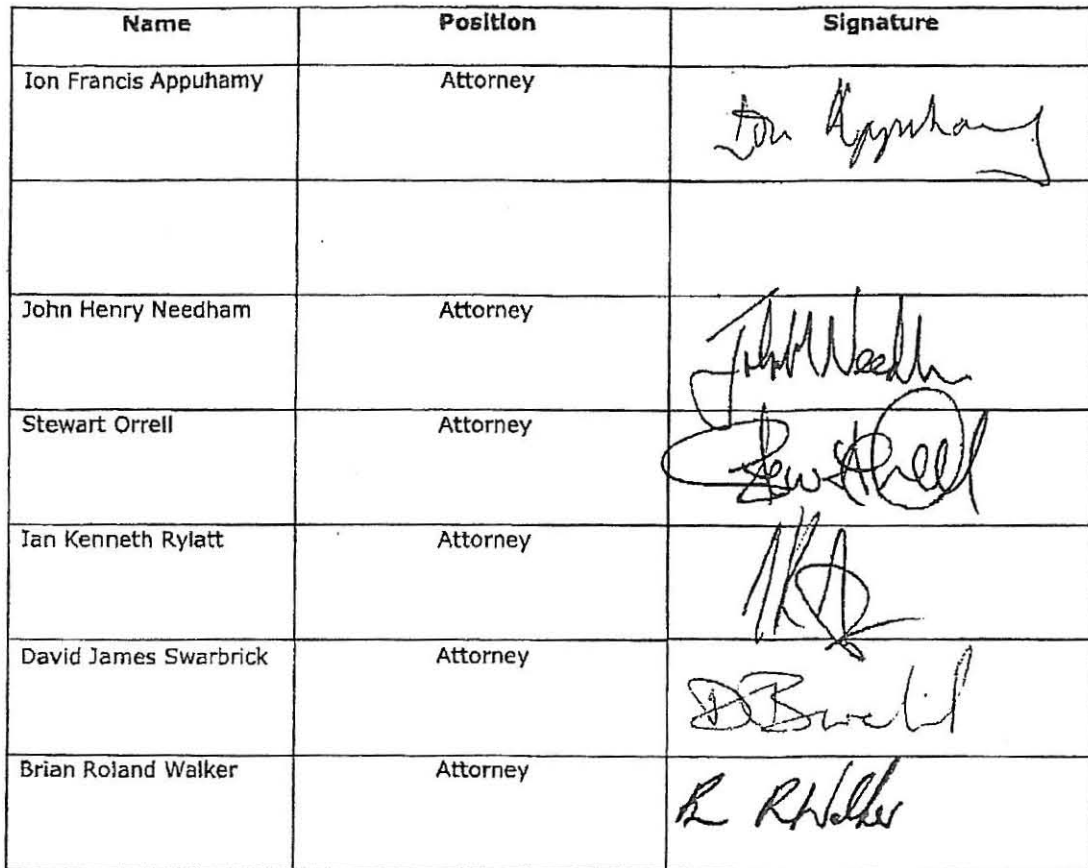 Name Position Signature
Ion Francis Appuhamy Attorney Ion Appuhamy
John Henry Needham Attorney John Needham
Stewart Orrell Attorney Stewart Orrell
Ian Kenneth Rylatt Attorney
David James Swarbrick Attorney
Brian Roland Walker Attorney R Walker